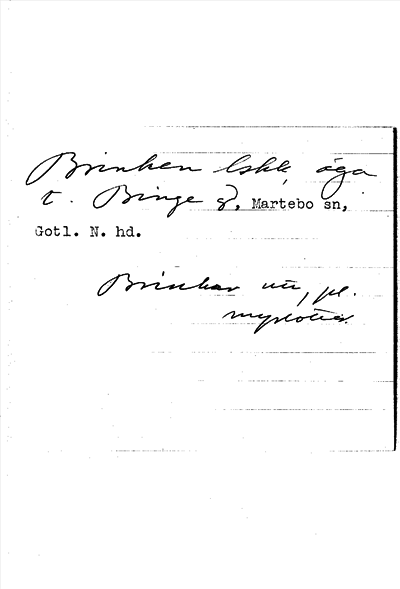 Brinken lskk, äga
t. Binge g, Martebo sn,
Gotl. N. hd.
Brinkar pl.
myslåtter